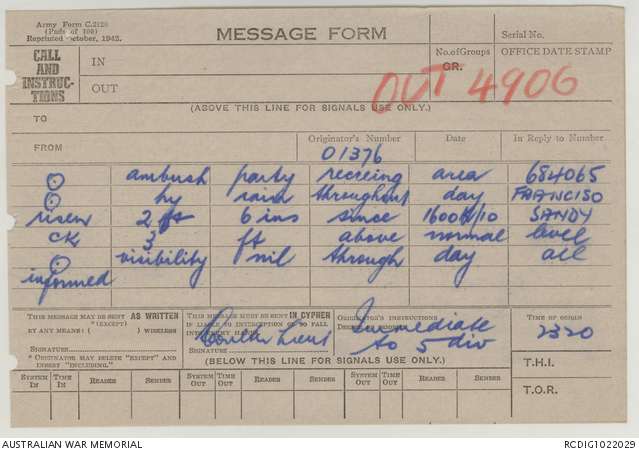 Army Form C.2128
(Pads of 100)
Reprinted October, 1942.
MESSAGE FORM
Serial No.
CALL AND INSTRUC-TIONS
IN
OUT
No. of Groups
GR.
OFFICE DATE STAMP
OUT 4906
(ABOVE THIS LINE FOR SIGNALS USE ONLY.)
TO
FROM
Originator's Number
Date
In Reply to Number
01376
⊙ ambush party recceing area 684065
⊙ hy rain throughout day FRANCISO
risen 2 ft 6 ins since 1600 SANDY
CK 3 ft above normal level
⊙ visibility nil through day all
informed
THIS MESSAGE MAY BE SENT AS WRITTEN
"(EXCEPT)
BY ANY MEANS ( ) WIRELESS
SIGNATURE
"ORIGINATOR MAY DELETE "EXCEPT" AND INSERT "INCLUDING."
THIS MESSAGE MUST BE SENT IN CYPHER
IF LIABLE TO INTERCEPTION OR TO FALL INTO ENEMY HANDS.
SIGNATURE Lieut
ORIGINATOR'S INSTRUCTIONS
Immediate
to 5 div
TIME OF ORIGIN
2320
(BELOW THIS LINE FOR SIGNALS USE ONLY.)
T.H.I.
SYSTEM IN TIME IN READER SENDER SYSTEM OUT TIME OUT READER SENDER SYSTEM OUT TIME OUT READER SENDER
T.O.R.
AUSTRALIAN WAR MEMORIAL
RCDIG1022029